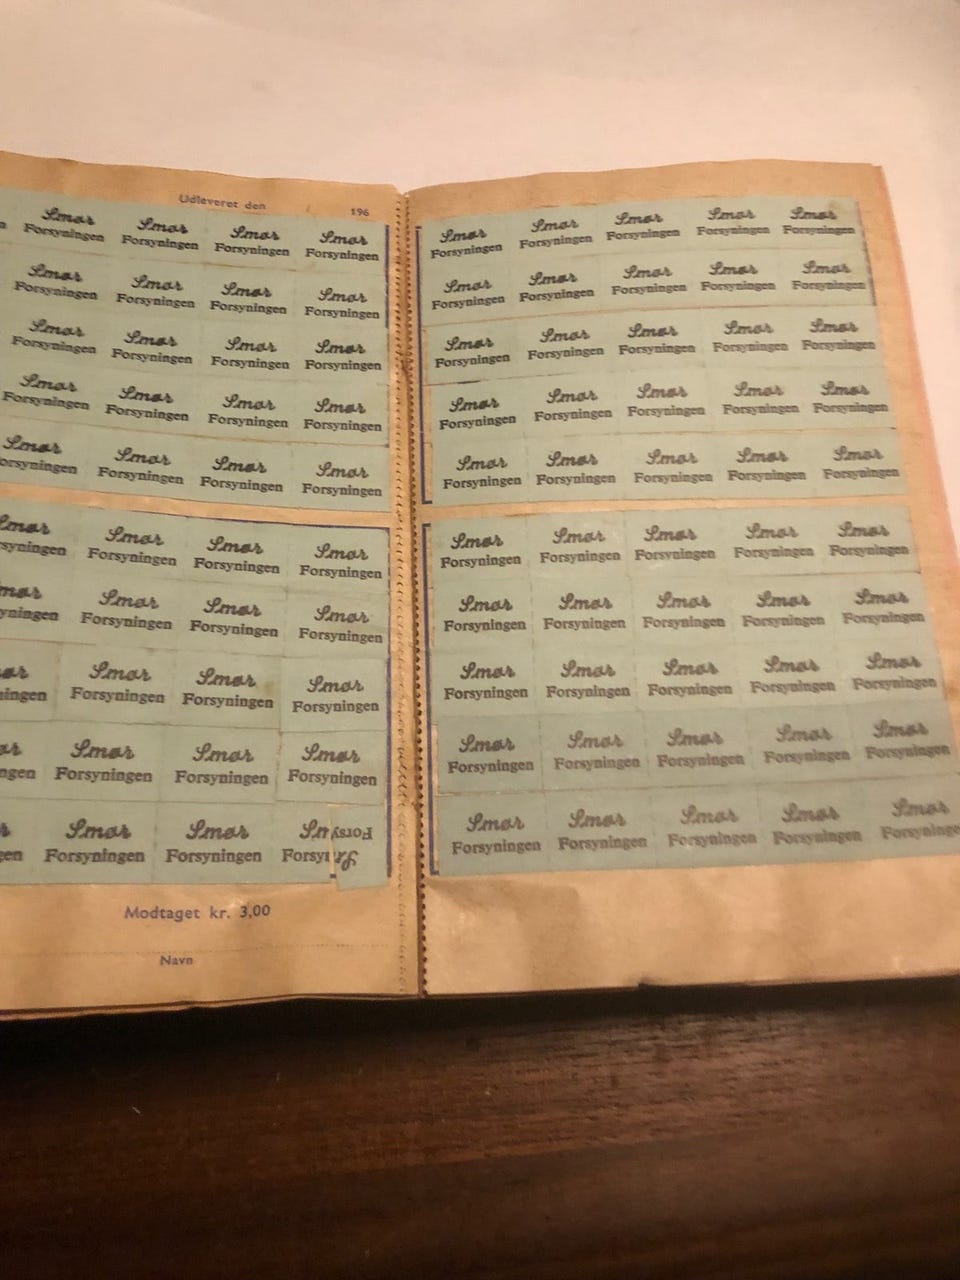 Udleveret den 196
Smør Smør Smør Smør
Forsyningen Forsyningen Forsyningen Forsyningen
Smør Smør Smør Smør
Forsyningen Forsyningen Forsyningen Forsyningen
Smør Smør Smør Smør
Forsyningen Forsyningen Forsyningen Forsyningen
Smør Smør Smør Smør
Forsyningen Forsyningen Forsyningen Forsyningen
Smør Smør Smør Smør
orsyningen Forsyningen Forsyningen Forsyningen
Smør Smør Smør Smør
rsyningen Forsyningen Forsyningen Forsyningen
mør Smør Smør Smør
yningen Forsyningen Forsyningen Forsyningen
ør Smør Smør Smør
ningen Forsyningen Forsyningen Forsyningen
ør Smør Smør Smør
ngen Forsyningen Forsyningen Forsyningen
r Smør Smør Sm Forsy
en Forsyningen Forsyningen Forsy
Modtaget kr. 3,00
Navn
Smør Smør Smør Smør Smør
Forsyningen Forsyningen Forsyningen Forsyningen Forsyningen
Smør Smør Smør Smør Smør
Forsyningen Forsyningen Forsyningen Forsyningen Forsyningen
Smør Smør Smør Smør Smør
Forsyningen Forsyningen Forsyningen Forsyningen Forsyningen
Smør Smør Smør Smør Smør
Forsyningen Forsyningen Forsyningen Forsyningen Forsyningen
Smør Smør Smør Smør Smør
Forsyningen Forsyningen Forsyningen Forsyningen Forsyningen
Smør Smør Smør Smør Smør
Forsyningen Forsyningen Forsyningen Forsyningen Forsyningen
Smør Smør Smør Smør Smør
Forsyningen Forsyningen Forsyningen Forsyningen Forsyningen
Smør Smør Smør Smør Smør
Forsyningen Forsyningen Forsyningen Forsyningen Forsyningen
Smør Smør Smør Smør Smør
Forsyningen Forsyningen Forsyningen Forsyningen Forsyningen
Smør Smør Smør Smør Smør
Forsyningen Forsyningen Forsyningen Forsyningen Forsyninge